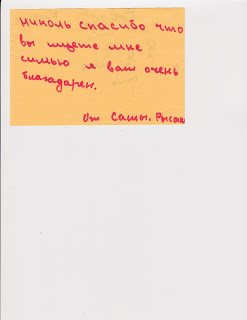 Николь спасибо что
вы ищете мне
симью я вам очень
благадарен.
От Саши.